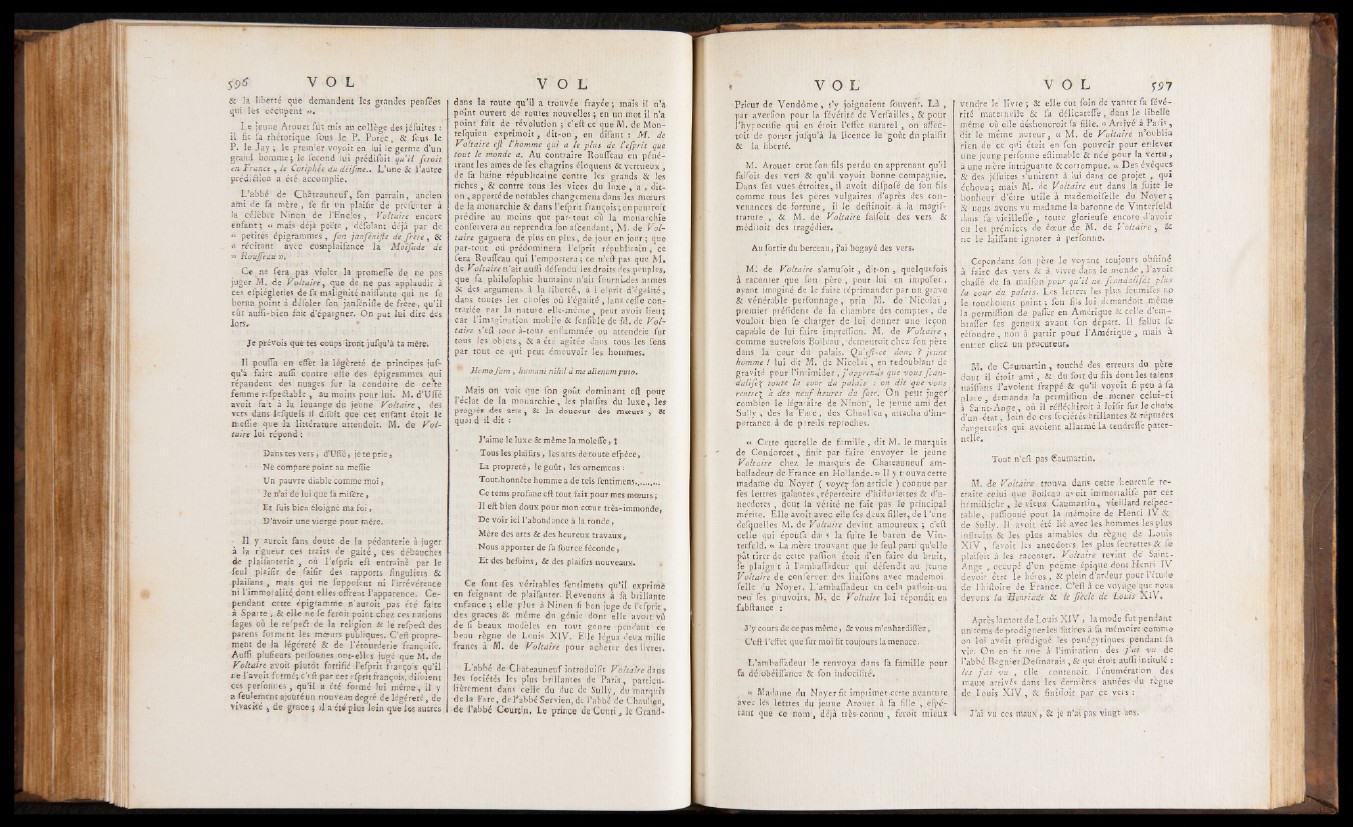 596 V O L
& la liberté que demandent les grandes pensées
qui les occupent ».
Le jeune Arouet fut mis au collège des jésuites :
il fit sa rhétorique sous le P. Porée, & sous le
P. le Jay ; le premier voyoit en lui le germe d'un
grand homme ; le second lui prédisoit qu'il seroit
en France, le Coriphée du déisme.. L'une & l'autre
prédiction a été accomplie.
L'abbé de Châteauneuf, son parrain, ancien
ami de sa mère, se fit un plaisir de présenter à
la célèbre Ninon de l'Enclos, Voltaire encore
enfant ; « mais déjà poëte, désolant déjà par de
« petites épigrammes, son janséniste de frère, &
« récitant avec complaisance la Moïsiade de
» Rousseau ».
Ce ne sera pas violer la promesse de ne pas
juger M. de Voltaire, que de ne pas applaudir à
ces espiègleries de sa malignité naissante qui ne se
borna point à désoler son janséniste de frère, qu'il
eût aussi-bien fait d'épargner. On put lui dire dès
lors.
Je prévois que tes coups iront jusqu'à ta mère.
Il poussa en effet la légèreté de principes jus-
qu'à faire aussi contre elle des épigrammes qui
répandent des nuages sur la conduite de cette
femme respectable, au moins pour lui. M. d'Ussé
avoit fait à la louange du jeune Voltaire, des
vers dans lesquels il disoit que cet enfant étoit le
messie que la littérature attendoit. M. de Vol-
taire lui répond :
Dans tes vers, d'Ussé, je te prie,
Ne compare point au messie
Un pauvre diable comme moi,
Je n'ai de lui que sa misère,
Et suis bien éloigné ma foi,
D'avoir une vierge pour mère.
Il y auroit sans doute de la pédanterie à juger
à la rigueur ces traits de gaité, ces débauches
de plaisanterie, où l'esprit est entraîné par le
seul plaisir de saisir des rapports singuliers &
plaisans, mais qui ne supposent ni l'irrévérence
ni l'immoralité dont elles offrent l'apparence. Ce-
pendant cette épigramme n'auroit pas été faite
à Sparte, & elle ne se feroit point chez ces nations
sages où le respect de la religion & le respect des
parens forment les mœurs publiques. C'est propre-
ment de la légéreté & de l'étourderie françoise.
Aussi plusieurs personnes ont-elles jugé que M. de
Voltaire avoit plutôt fortifié l'esprit françois qu'il
ne l'avoit formé ; c'est par cet esprit françois, disoient
ces personnes, qu'il a été formé lui même, il y
a seulement ajouté un nouveau degré de légéreté, de
vivacité, de grace ; il a été plus loin que les autres
V O L
dans la route qu'il a trouvée frayée ; mais il n'a
point ouvert de routes nouvelles ; en un mot il n'a
point fait de révolution ; c'est ce que M. de Mon-
tesquieu exprimoit, dit-on, en disant : M. de
Voltaire est l'homme qui a le plus de l'esprit que
tout le monde a. Au contraire Rousseau en péné-
trant les ames de ses chagrins éloquens & vertueux,
de sa haine républicaine contre les grands & les
riches, & contre tous les vices du luxe, a, dit-
on, apporté de notables changemens dans les mœurs
de la monarchie & dans l'esprit françois ; on pourroit
prédire au moins que par-tout où la monarchie
conservera ou reprendra son ascendant, M. de Vol-
taire gagnera de plus en plus, de jour en jour ; que
par-tout où prédominera l'esprit républicain, ce
sera Rousseau qui l'emportera ; ce n'est pas que M.
de Voltaire n'ait aussi défendu les droits des peuples,
que sa philosophie humaine n'ait fourni des armes
& des argumens à la liberté, à l'esprit d'égalité,
dans toutes les choses où l'égalité, sans cesse con-
trariée par la nature elle-même, peut avoir lieu ;
car l'imagination mobile & sensible de M. de Vol-
taire s'est tour à-tour enflammée ou attendrie sur
tous les objets, & a été agitée dans tous les sens
par tout ce qui peut émouvoir les hommes.
Homo sum, humani nihil à me alienum puto.
Mais on voit que son goût dominant est pour
l'éclat de la monarchie, les plaisirs du luxe, les
progrès des arts, & la douceur des mœurs, &
quand il dit :
J'aime le luxe & même la molesse,
Tous les plaisirs, les arts de toute espéce,
La propreté, le goût, les ornemens :
Tout honnête homme a de tels sentimens.........
Ce tems profane est tout fait pour mes mœurs ;
Il est bien doux pour mon cœur très-immonde,
De voir ici l'abondance à la ronde,
Mère des arts & des heureux travaux,
Nous apporter de sa source féconde,
Et des besoins, & des plaisirs nouveaux.
Ce sont ses véritables sentimens qu'il exprime
en feignant de plaisanter. Revenons à sa brillante
enfance ; elle plut à Ninon si bon juge de l'esprit,
des graces & même du génie dont elle avoit vû
de si beaux modèles en tout genre pendant ce
beau règne de Louis XIV. Elle légua deux mille
francs à M. de Voltaire pour acheter des livres.
L'abbé de Chateauneuf introduisit Voltaire dans
les sociétés les plus brillantes de Paris, particu-
lièrement dans celle du duc de Sully, du marquis
de la Fare, de l'abbé Servien, de l'abbé de Chaulieu,
de l'abbé Courtin. Le prince de Conti, le Grand-
V O L
Prieur de Vendôme, s'y joignoient souvent. Là,
par aversion pour la sévérité de Versailles, & pour
l'hypocrisie qui en étoit l'effet naturel, on affec-
toit de porter jusqu'à la licence le goût du plaisir
& la liberté.
M. Arouet crut son fils perdu en apprenant qu'il
faisoit des vers & qu'il voyoit bonne compagnie.
Dans ses vues étroites, il avoit disposé de son fils
comme tous les peres vulgaires d'après des con-
venances de fortune, il le destinoit à la magis-
trature, & M. de Voltaire faisoit des vers &
méditoit des tragédies.
Au sortir du berceau, j'ai begayé des vers.
M. de Voltaire s'amusoit, dit-on, quelquefois
à raconter que son père, pour lui en imposer,
ayant imaginé de le faire réprimander par un grave
& vénérable personnage, pria M. de Nicolaï,
premier président de la chambre des comptes, de
vouloir bien se charger de lui donner une leçon
capable de lui faire impression. M. de Voltaire,
comme autrefois Boileau, demeuroit chez son père
dans la cour du palais. Qu'est-ce donc ? jeune
homme ! lui dit M. de Nicolaï, en redoublant de
gravité pour l'intimider, j'apprends que vous scan-
dalisez toute la cour du palais : on dit que vous
rentrez à des neuf heures du soir. On peut juger
combien le légataire de Ninon, le jeune ami des
Sully, des la Fare, des Chaulieu, attacha d'im-
portance à de pareils reproches.
« Cette querelle de famille, dit M. le marquis
de Condorcet, finit par faire envoyer le jeune
Voltaire chez le marquis de Chateauneuf am-
bassadeur de France en Hollande. » Il y trouva cette
madame du Noyer ( voyez son article ) connue par
ses lettres galantes, répertoire d'historiettes & d'a-
necdotes, dont la vérité ne fait pas le principal
mérite. Elle avoit avec elle ses deux filles, de l'une
desquelles M. de Voltaire devint amoureux ; c'est
celle qui épousa dans la suite le baron de Vin-
terfeld. « La mère trouvant que le seul parti qu'elle
pût tirer de cette passion étoit d'en faire du bruit,
se plaignit à l'ambassadeur qui défendit au jeune
Voltaire de conserver des liaisons avec mademoi-
selle du Noyer. L'ambassadeur en cela passoit un
peu ses pouvoirs, M. de Voltaire lui répondit en
substance :
J'y cours de ce pas même, & vous m'enhardissez,
C'est l'effet que sur moi fit toujours la menace.
L'ambassadeur le renvoya dans sa famille pour
sa désobéissance & son indocilité.
« Madame du Noyer fit imprimer cette avanture
avec les lettres du jeune Arouet à sa fille, espé-
rant que ce nom, déjà très-connu, feroit mieux
V O L 597
vendre le livre ; & elle eut soin de vanter sa sévé-
rité maternelle & sa délicatesse, dans le libelle
même où elle déshonoroit sa fille. « Arrivé à Paris,
dit le même auteur, « M. de Voltaire n'oublia
rien de ce qui étoit en son pouvoir pour enlever
une jeune personne estimable & née pour la vertu,
à une mère intriguante & corrompue. » Des évêques
& des jésuites s'unirent à lui dans ce projet, qui
échoua ; mais M. de Voltaire eut dans la suite le
bonheur d'être utile à mademoiselle du Noyer ;
& nous avons vu madame la baronne de Vinterfeld
dans sa vieillesse, toute glorieuse encore d'avoir
eu les prémices de cœur de M. de Voltaire, &
ne le laissant ignorer à personne.
Cependant son père le voyant toujours obstiné
à faire des vers & à vivre dans le monde, l'avoit
chassé de sa maison pour qu'il ne scandalisât plus
la cour du palais. Les lettres les plus soumises ne
le touchoient point ; son fils lui demandoit même
la permission de passer en Amérique & celle d'em-
brasser ses genoux avant son départ. Il fallut se
résoudre, non à partir pour l'Amérique, mais à
entrer chez un procureur.
M. de Caumartin, touché des erreurs du père
dont il étoit ami, & du sort du fils dont les talens
naissans l'avoient frappé & qu'il voyoit si peu à sa
place, demanda la permission de mener celui-ci
à Saint-Ange, où il réfléchiroit à loisir sur le choix
d'un état, loin de ces sociétés brillantes & réputées
dangereuses qui avoient allarmé la tendresse pater-
nelle.
Tout n'est pas Caumartin.
M. de Voltaire trouva dans cette heureuse re-
traite celui que Boileau avoit immortalisé par cet
hémistiche, le vieux Caumartin, vieillard respec-
table, passionné pour la mémoire de Henri IV &
de Sully. Il avoit été lié avec les hommes les plus
instruits & les plus aimables du règne de Louis
XIV, savoit les anecdotes les plus secrettes & se
plaisoit à les raconter. Voltaire revint de Saint-
Ange, occupé d'un poëme épique dont Henri IV
devoit être le héros, & plein d'ardeur pour l'étude
de l'histoire de France. C'est à ce voyage que nous
devons la Henriade & le siècle de Louis XIV.
Après la mort de Louis XIV, la mode fut pendant
un tems de prodiguer les satires à sa mémoire comme
on lui avoit prodigué les panégyriques pendant sa
vie. On en fit une à l'imitation des j'ai vu de
l'abbé Regnier Desmarais, & qui étoit aussi intitulé :
les j'ai vu, elle contenoit l'énumération des
maux arrivés dans les dernières années du règne
de Louis XIV, & finissoit par ce vers :
J'ai vu ces maux, & je n'ai pas vingt ans.